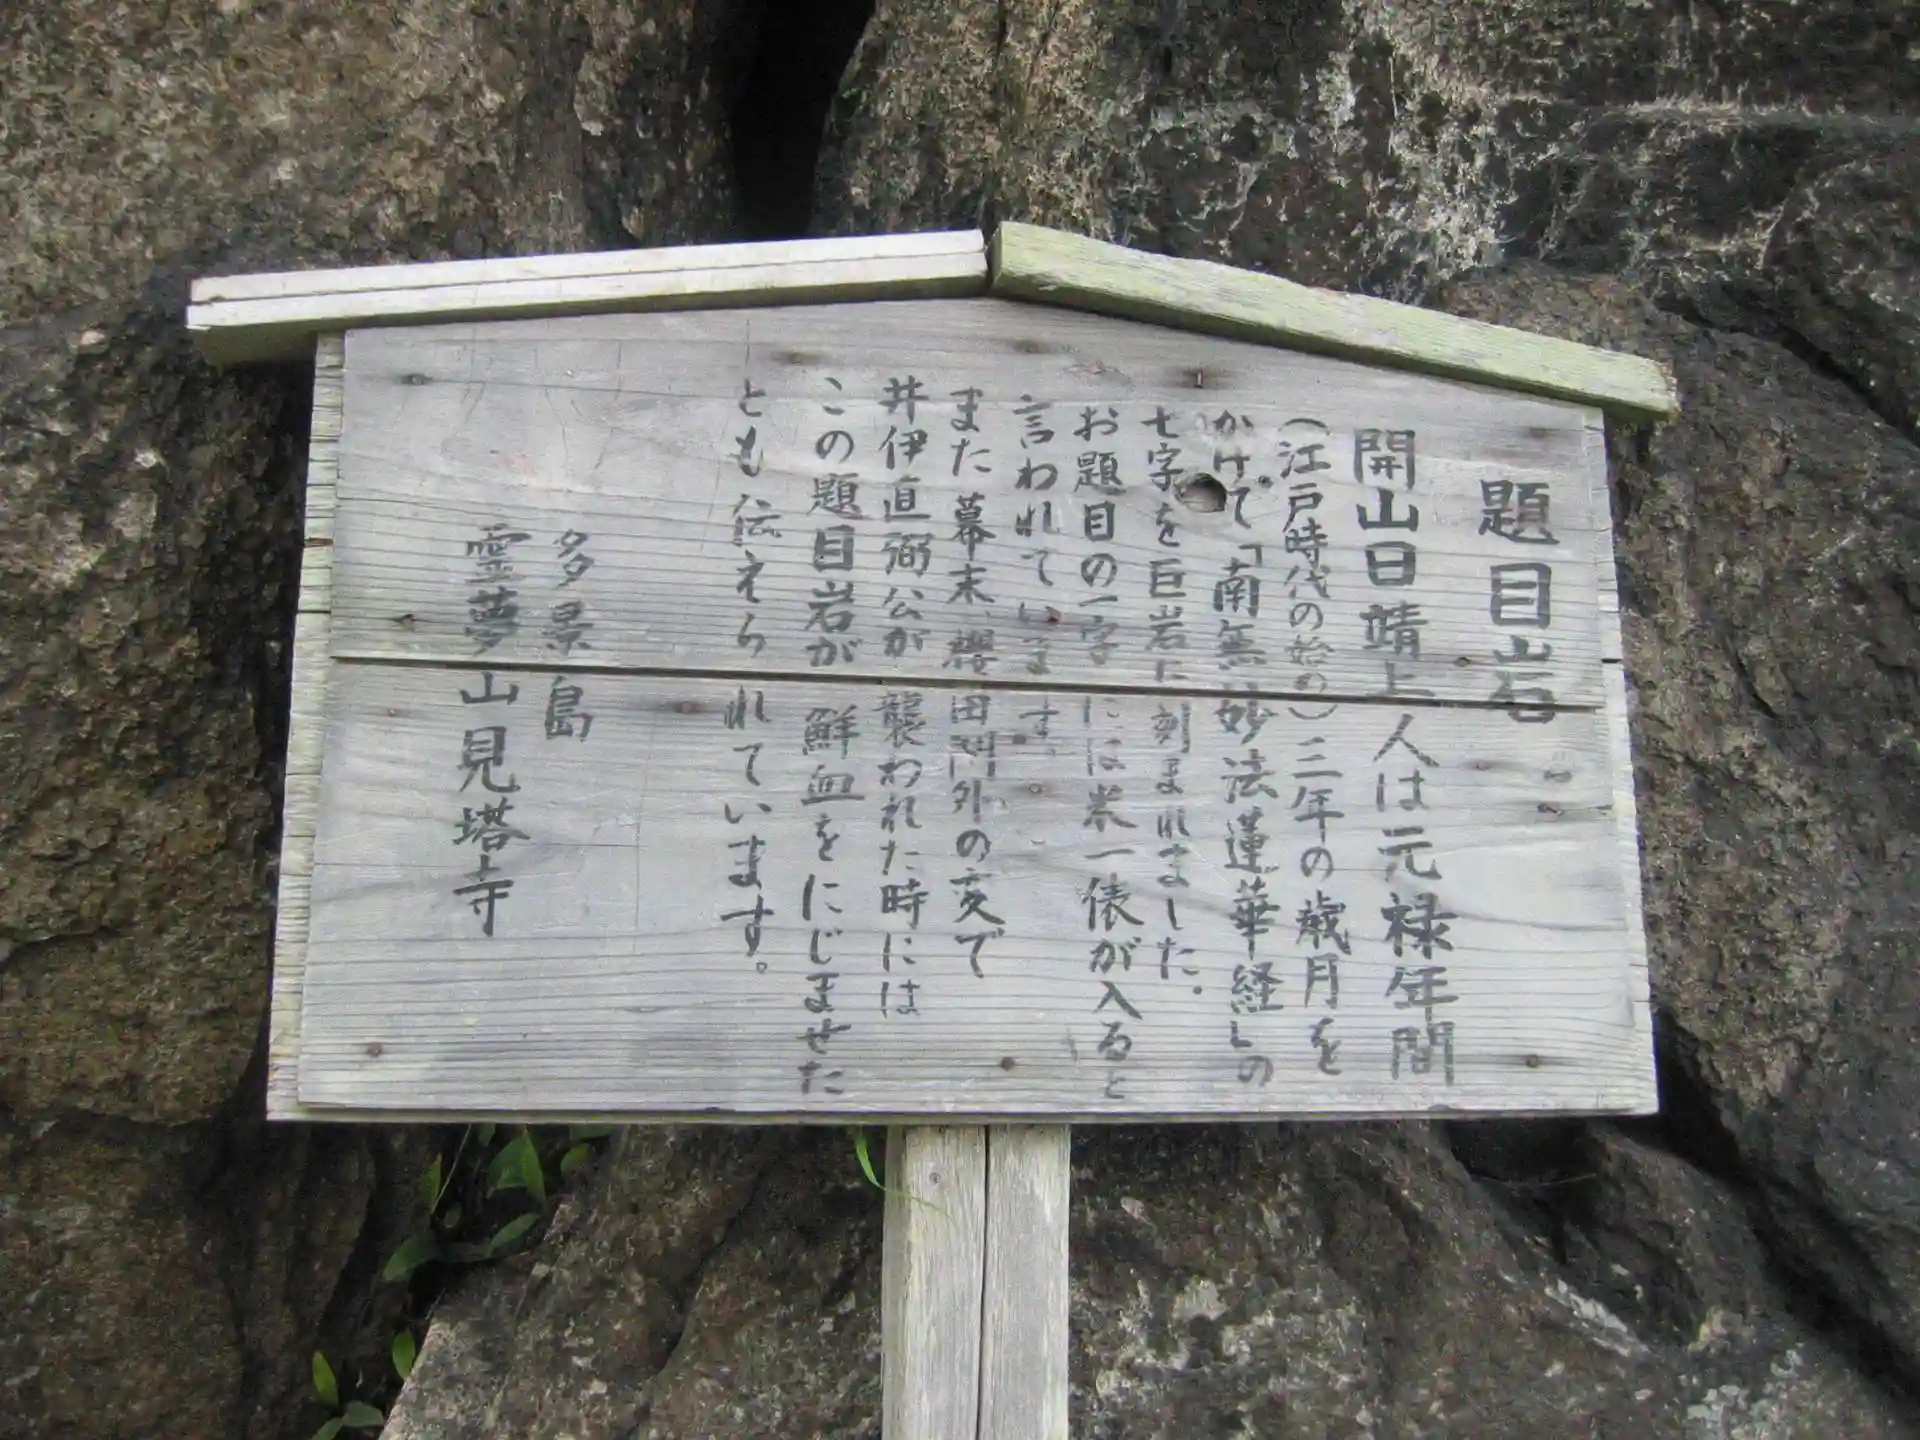 題目岩
開山日靖上人は元禄年間
(江戸時代の始め)三年の歳月を
かけて「南無妙法蓮華経」の
七字を巨岩に刻まれました。
お題目の一字には米一俵が入ると
言われています。
また幕末、櫻田門外の変で
井伊直弼公が襲われた時には
この題目岩が鮮血をにじませた
とも伝えられています。
多景島
霊夢山見塔寺